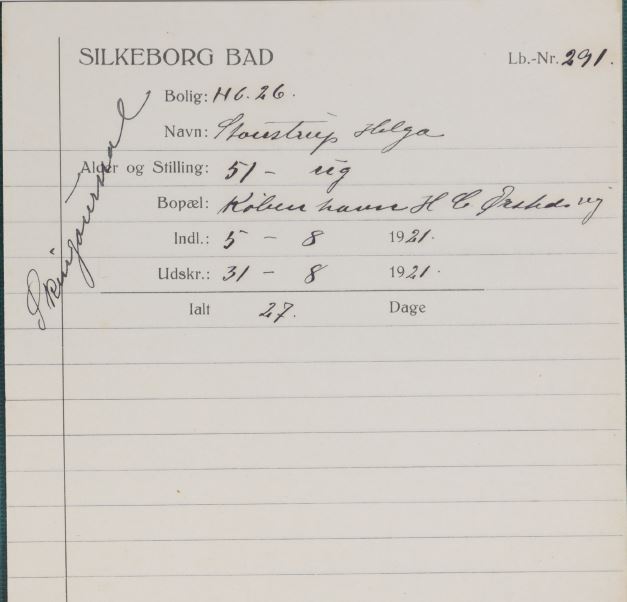 SILKEBORG BAD
Lb.-Nr. 291.
Bolig: H6.26.
Navn: Stoustrup Helga
Alder og Stilling: 51 - ug
Bopæl: København H C Ørstedsvej
Indl.: 5 - 8 1921.
Udskr.: 31 - 8 1921.
Ialt 27. Dage